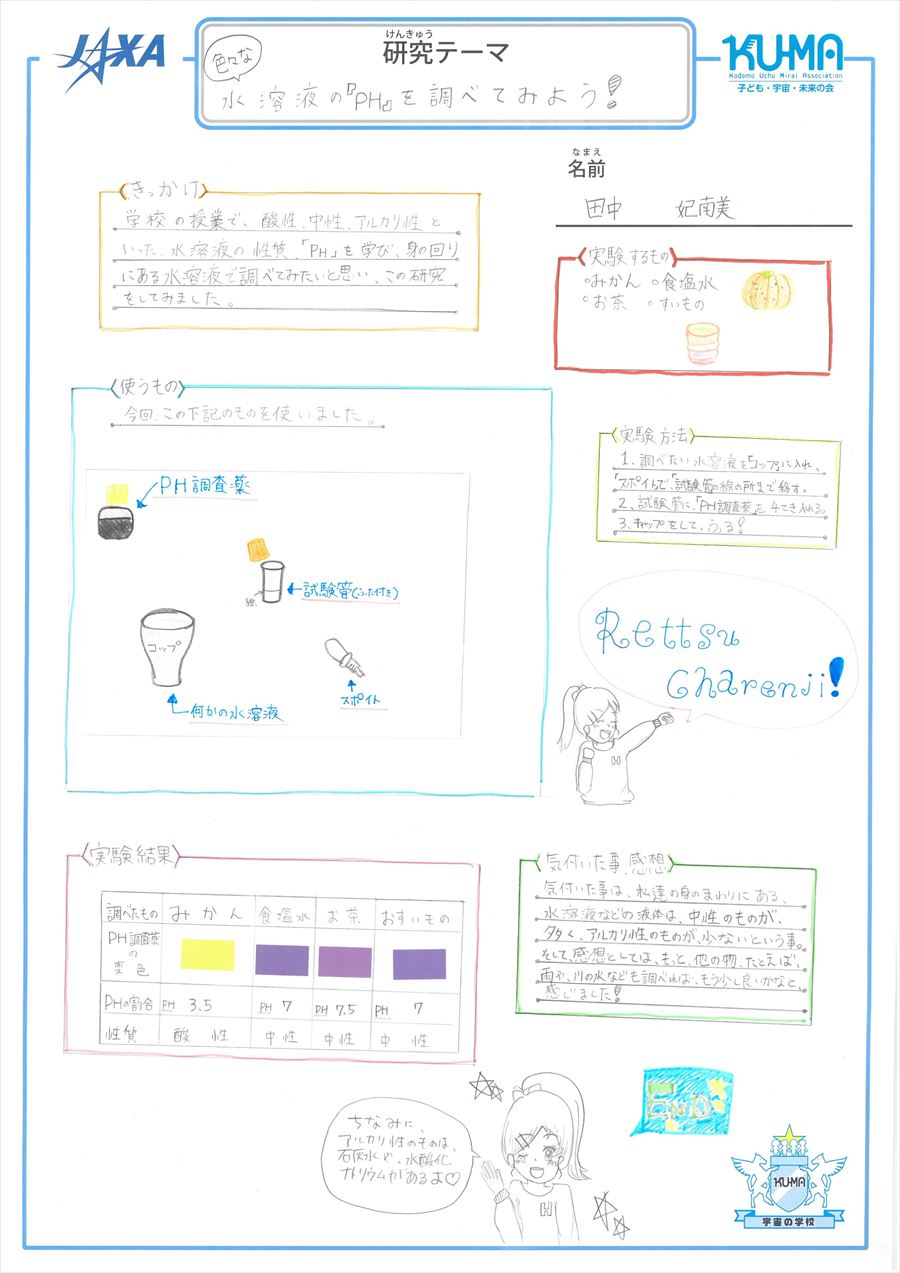 JAXA
けんきゅう
研究テーマ
色々な
水溶液の『PH』を調べてみよう!
KU-MA
Kodomo Uchu Mirai Association
子ども・宇宙・未来の会
なまえ
名前
田中 妃南美
きっかけ
学校の授業で、酸性、中性、アルカリ性と
いった、水溶液の性質、「PH」を学び、身の回り
にある水溶液で調べてみたいと思い、この研究
をしてみました。
実験するもの
○みかん ○食塩水
○お茶 ○すいもの
使うもの
今回、この下記のものを使いました。
PH調査薬
試験管(ふた付き)
線
コップ
スポイト
何かの水溶液
実験方法
1、調べたい水溶液を「コップ」に入れ、
「スポイト」で、「試験管」の線の所まで移す。
2、試験管に、「PH調査薬」を4てき入れる。
3、キャップをして、ふる!
Rettsu
Charenji!
H
実験結果
調べたもの みかん 食塩水 お茶 おすいもの
PH調査薬
の
変色
PHの割合 PH 3.5 PH 7 PH 7.5 PH 7
性質 酸性 中性 中性 中性
気付いた事、感想
気付いた事は、私達の身のまわりにある、
水溶液などの液体は、中性のものが、
多く、アルカリ性のものが、少ないという事。
そして、感想としては、もっと、他の物、たとえば、
雨や、川の水なども調べれば、もう少し良いかなと、
感じました!
ちなみに、
アルカリ性のものは、
石灰水や、水酸化
ナトリウムがあるよ♡
H
END
KU-MA
宇宙の学校